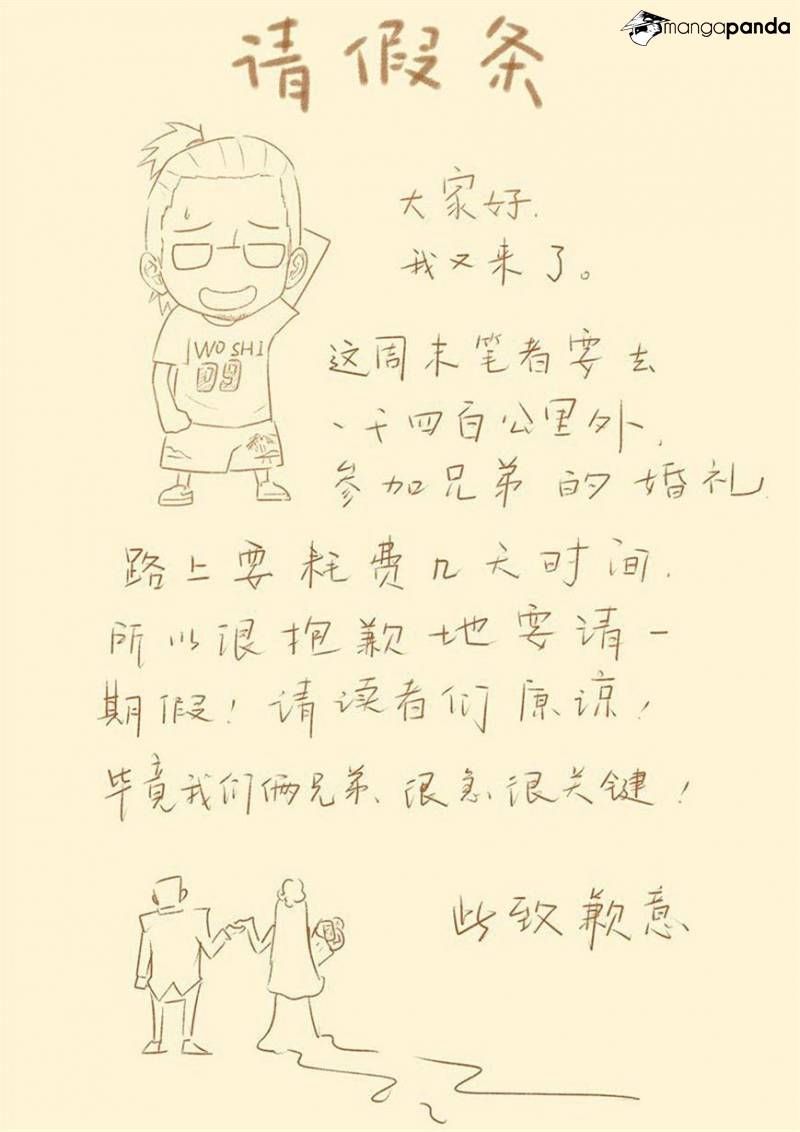 mangapanda
请假条
大家好.
我又来了。
WO SHI
09
这周末笔者要去
一千四百公里外,
参加兄弟的婚礼.
路上要耗费几天时间.
所以很抱歉地要请一
期假!请读者们原谅!
毕竟我们俩兄弟、很急很关键!
此致歉意